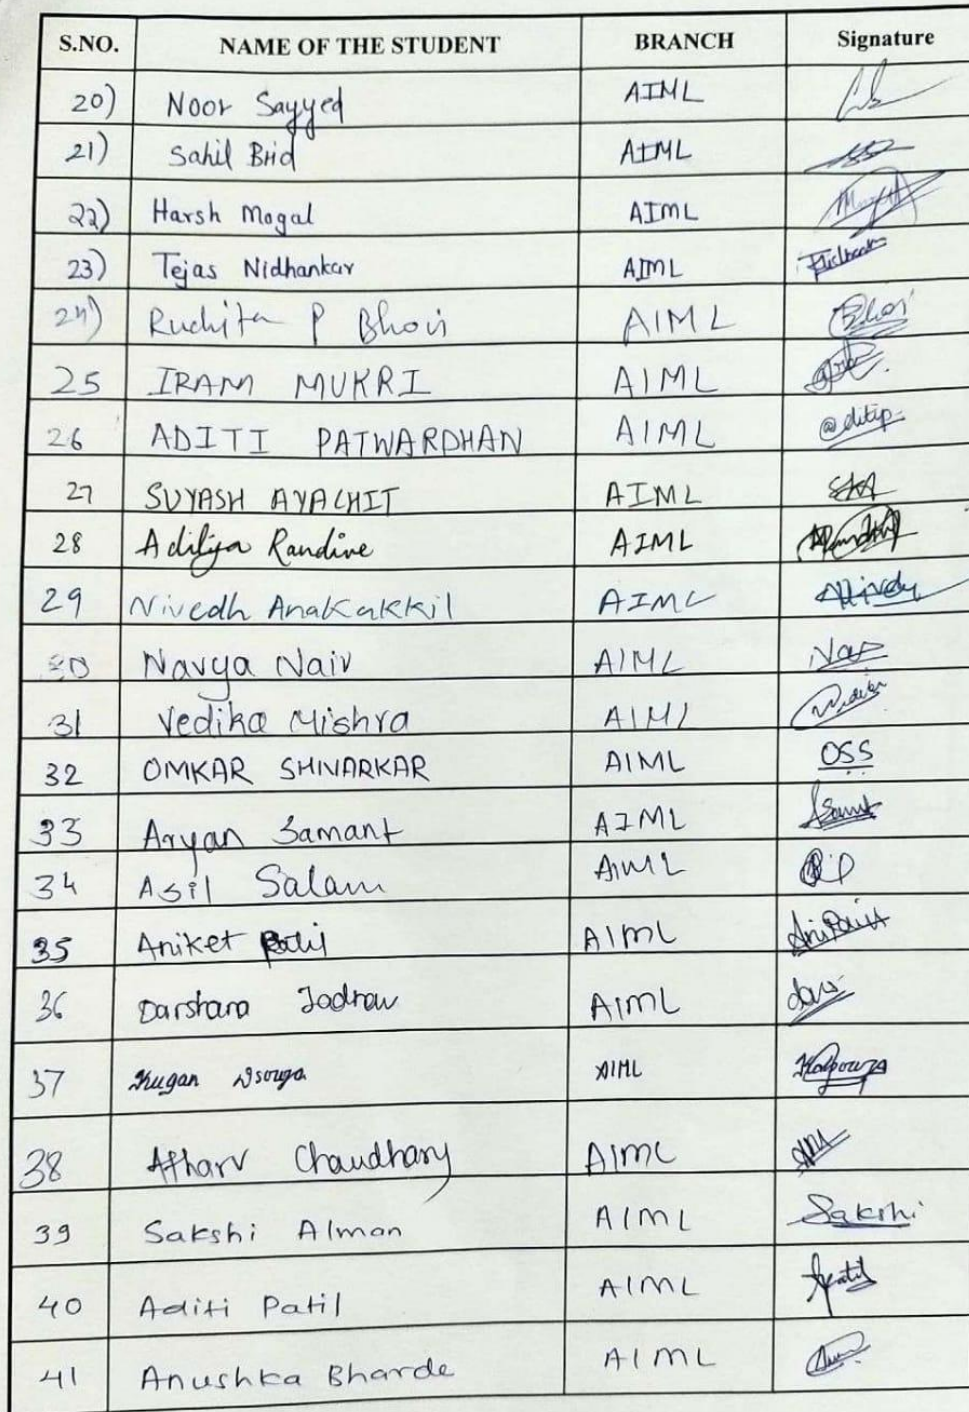 S.NO. NAME OF THE STUDENT BRANCH Signature
20) Noor Sayyed AIML
21) Sahil Brid AIML
22) Harsh Mogal AIML
23) Tejas Nidhankar AIML
24) Ruchita P Bhoir AIML Bhoir
25 IRAM MUKRI AIML
26 ADITI PATWARDHAN AIML @ditip
27 SUYASH AYACHIT AIML SAA
28 Aditya Randive AIML
29 Nivedh Anakakkil AIML
30 Navya Nair AIML Nav
31 Vedika Mishra AIML
32 OMKAR SHIVARKAR AIML OSS
33 Aryan Samant AIML ASamant
34 Asil Salam AIML
35 Aniket Patil AIML
36 Darshana Jadhav AIML
37 AIML
38 Atharv Chaudhary AIML
39 Sakshi Almon AIML Sakshi
40 Aditi Patil AIML Apatil
41 Anushka Bharde AIML